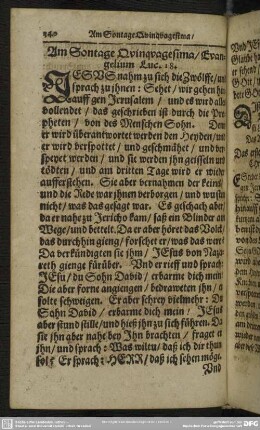 340
Am Sontage Qvinqvagesima/
Am Sontage Qvinqvagesima/ Evan-
gelium Luc. 18.
JESUS nahm zu sich die Zwölffe/ un
sprach zu jhnen: Sehet/ wir gehen hi
nauff gen Jerusalem/ und es wird alle
vollendet/ das geschrieben ist durch die Pro
pheten/ von des Menschen Sohn. Den
er wird überantwortet werden den Heyden/ un
er wird verspottet/ und geschmähet/ und ver
speyet werden/ und sie werden jhn geisseln un
tödten/ und am dritten Tage wird er wiede
aufferstehen. Sie aber vernahmen der keins/
und die Rede war jhnen verborgen/ und wusten
nicht/ was das gesagt war. Es geschach aber/
da er nahe zu Jericho kam/ saß ein Blinder am
Wege/ und bettelt. Da er aber höret das Volck/
das durchhin gieng/ forschet er/ was das were/
Da verkündigten sie jhm/ JEsus von Naza
reth gienge fürüber. Und er rieff und sprach:
JEsu/ du Sohn David/ erbarme dich mein
Die aber forne angiengen/ bedraweten jhn/ er
solte schweigen. Er aber schrey vielmehr: Du
Sohn David/ erbarme dich mein/ JEsus
aber stund stille/ und hieß jhn zu sich führen. Da
sie jhn aber nahe bey Jhn brachten/ fraget er
jhn/ und sprach: Was wiltu/ daß ich dir thun
sol? Er sprach: HERR/ daß ich sehen möge.
Und